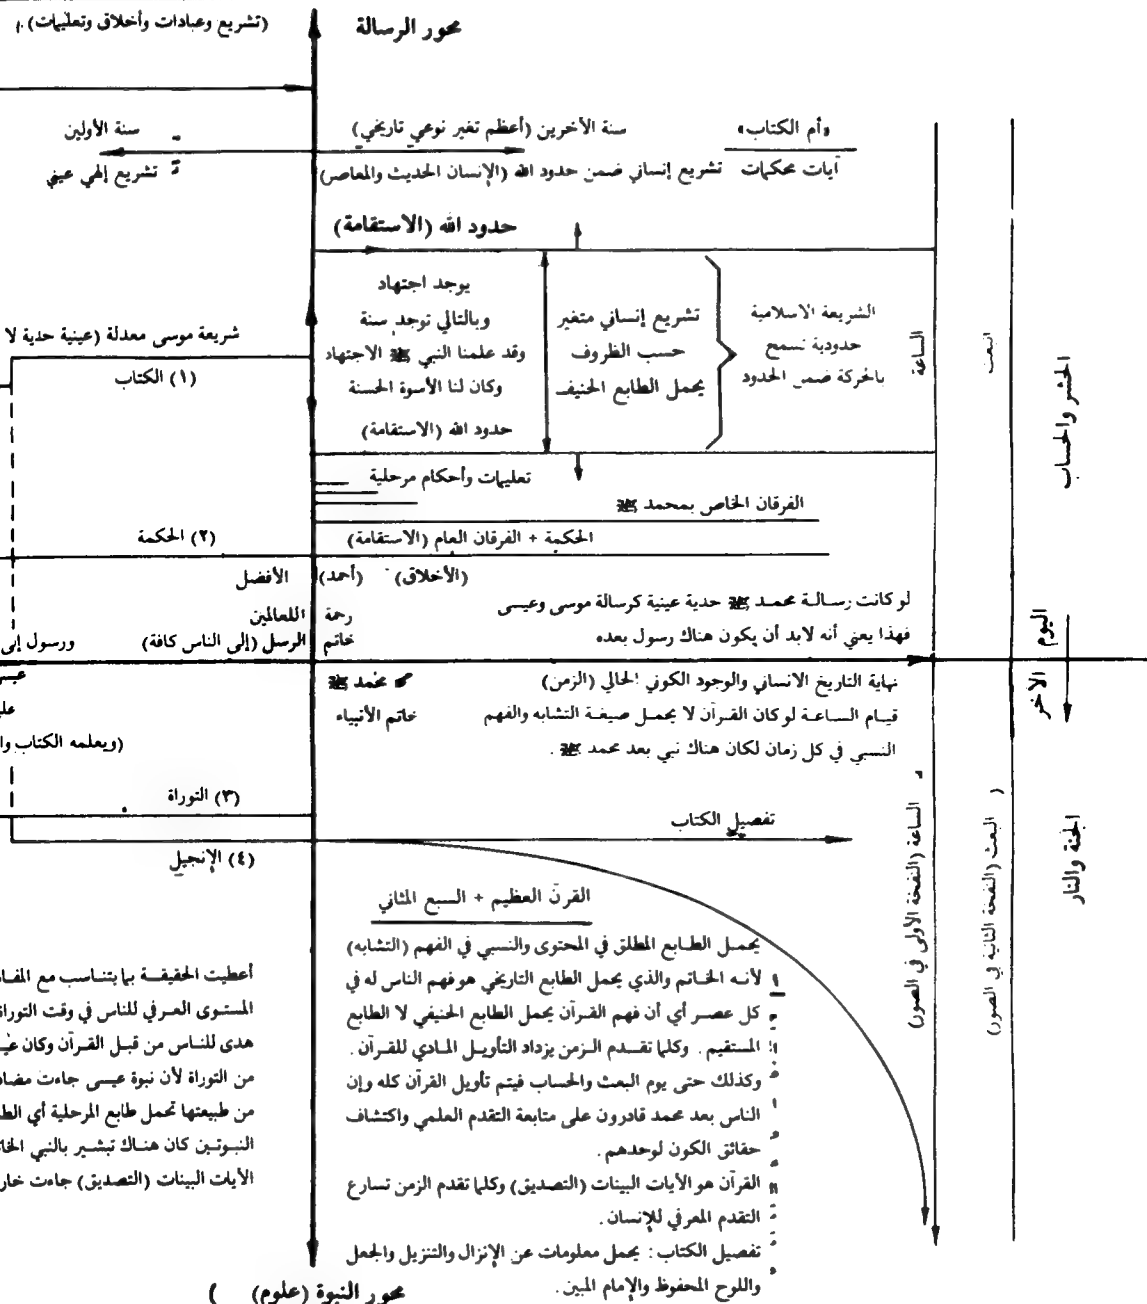 محور الرسالة
(تشريع وعبادات وأخلاق وتعليمات).
«أم الكتاب»
سنة الآخرين (أعظم تغير نوعي تاريخي)
سنة الأولين
آيات محكمات
تشريع إنساني ضمن حدود الله (الإنسان الحديث والمعاصر)
تشريع إلهي عيني
حدود الله (الاستقامة)
الشريعة الاسلامية
حدودية تسمح
بالحركة ضمن الحدود
تشريع إنساني متغير
حسب الظروف
يحمل الطابع الحنيف
يوجد اجتهاد
وبالتالي توجد سنة
وقد علمنا النبي ﷺ الاجتهاد
وكان لنا الأسوة الحسنة
حدود الله (الاستقامة)
شريعة موسى معدلة (عينية حدية لا
(١) الكتاب
الساعة
البعث
الحشر والحساب
تعليمات وأحكام مرحلية
الفرقان الخاص بمحمد ﷺ
الحكمة + الفرقان العام (الاستقامة)
(٢) الحكمة
(الأخلاق) (أحمد) الأفضل
رحمة للعالمين
خاتم الرسل (إلى الناس كافة)
ورسول إلى
لو كانت رسالة محمد ﷺ حدية عينية كرسالة موسى وعيسى
فهذا يعني أنه لابد أن يكون هناك رسول بعده
اليوم الآخر
نهاية التاريخ الانساني والوجود الكوني الحالي (الزمن)
قيام الساعة لو كان القرآن لا يحمل صيغة التشابه والفهم
النسبي في كل زمان لكان هناك نبي بعد محمد ﷺ.
محمد ﷺ
خاتم الأنبياء
(ويعلمه الكتاب وا
(٣) التوراة
(٤) الإنجيل
تفصيل الكتاب
الساعة (النفخة الأولى في الصور)
البعث (النفخة الثانية في الصور)
الجنة والنار
القرآن العظيم + السبع المثاني
يحمل الطابع المطلق في المحتوى والنسبي في الفهم (التشابه)
لأنه الخاتم والذي يحمل الطابع التاريخي هو فهم الناس له في
كل عصر أي أن فهم القرآن يحمل الطابع الحنيفي لا الطابع
المستقيم. وكلما تقدم الزمن يزداد التأويل المادي للقرآن.
وكذلك حتى يوم البعث والحساب فيتم تأويل القرآن كله وإن
الناس بعد محمد قادرون على متابعة التقدم العلمي واكتشاف
حقائق الكون لوحدهم.
القرآن هو الآيات البينات (التصديق) وكلما تقدم الزمن تسارع
التقدم المعرفي للإنسان.
تفصيل الكتاب: يحمل معلومات عن الإنزال والتنزيل والجعل
واللوح المحفوظ والإمام المبين.
أعطيت الحقيقة بما يتناسب مع المفا
المستوى المعرفي للناس في وقت التوراة
هدى للناس من قبل القرآن وكان
من التوراة لأن نبوة عيسى جاءت
من طبيعتها تحمل طابع المرحلية أي الط
النبوتين كان هناك تبشير بالنبي الخا
الآيات البينات (التصديق) جاءت خار
محور النبوة (علوم)